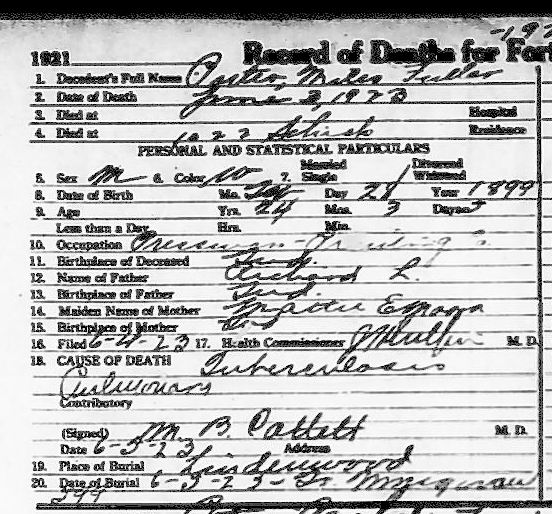 -192
1921 Record of Deaths for Fort
1. Decedent's Full Name Porter, Miles Fuller
2. Date of Death June 3, 1923
3. Died at Hospital
4. Died at 1022 Residence
PERSONAL AND STATISTICAL PARTICULARS
5. Sex M 6. Color W 7. Married Single Divorced Widowed
8. Date of Birth Mo. Day 28 Year 1899
9. Age Yrs. 24 Mos. 3 Days 5
Less than a Day Hrs. Min.
10. Occupation
11. Birthplace of Deceased Ind.
12. Name of Father Richard L.
13. Birthplace of Father Ind
14. Maiden Name of Mother Mattie
15. Birthplace of Mother
16. Filed 6-4-23 17. Health Commissioner M. D.
18. CAUSE OF DEATH Tuberculosis
Pulmonary
Contributory
(Signed) M. B. Catlett M. D.
Date 6-3-23 Address
19. Place of Burial Lindenwood
20. Date of Burial 6-5-23